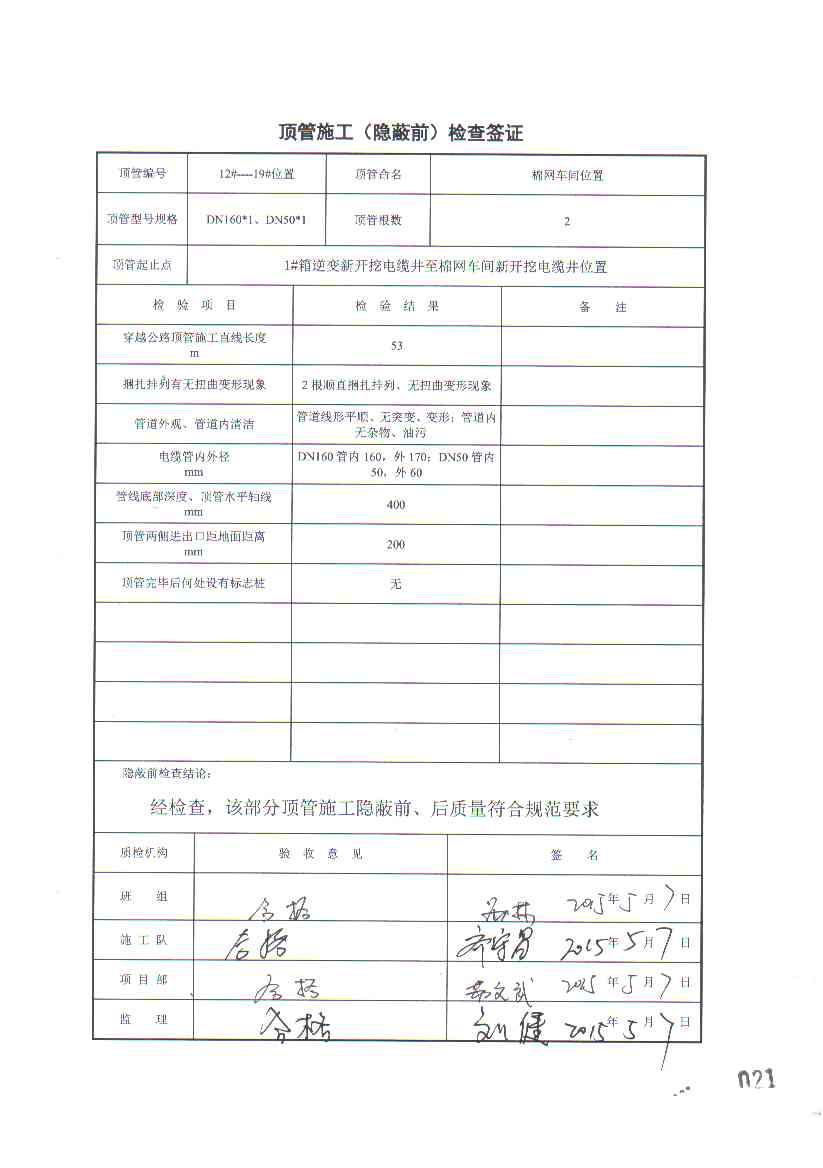 顶管施工（隐蔽前）检查签证
顶管编号 12#----19#位置 顶管合名 棉网车间位置
顶管型号规格 DN160*1、DN50*1 顶管根数 2
顶管起止点 1#箱逆变新开挖电缆井至棉网车间新开挖电缆井位置
检 验 项 目 检 验 结 果 备 注
穿越公路顶管施工直线长度
m
53
捆扎排列有无扭曲变形现象 2根顺直捆扎排列、无扭曲变形现象
管道外观、管道内清洁
管道线形平顺、无突变、变形；管道内
无杂物、油污
电缆管内外径
mm
DN160管内160，外170；DN50管内
50，外60
管线底部深度、顶管水平轴线
mm
400
顶管两侧进出口距地面距离
mm
200
顶管完毕后何处设有标志桩 无
隐蔽前检查结论：
经检查，该部分顶管施工隐蔽前、后质量符合规范要求
质检机构 验 收 意 见 签 名
班 组 合格 2015年5月7日
施工队 合格 2015年5月7日
项目部 合格 2015年5月7日
监 理 合格 刘健 2015年5月7日
021